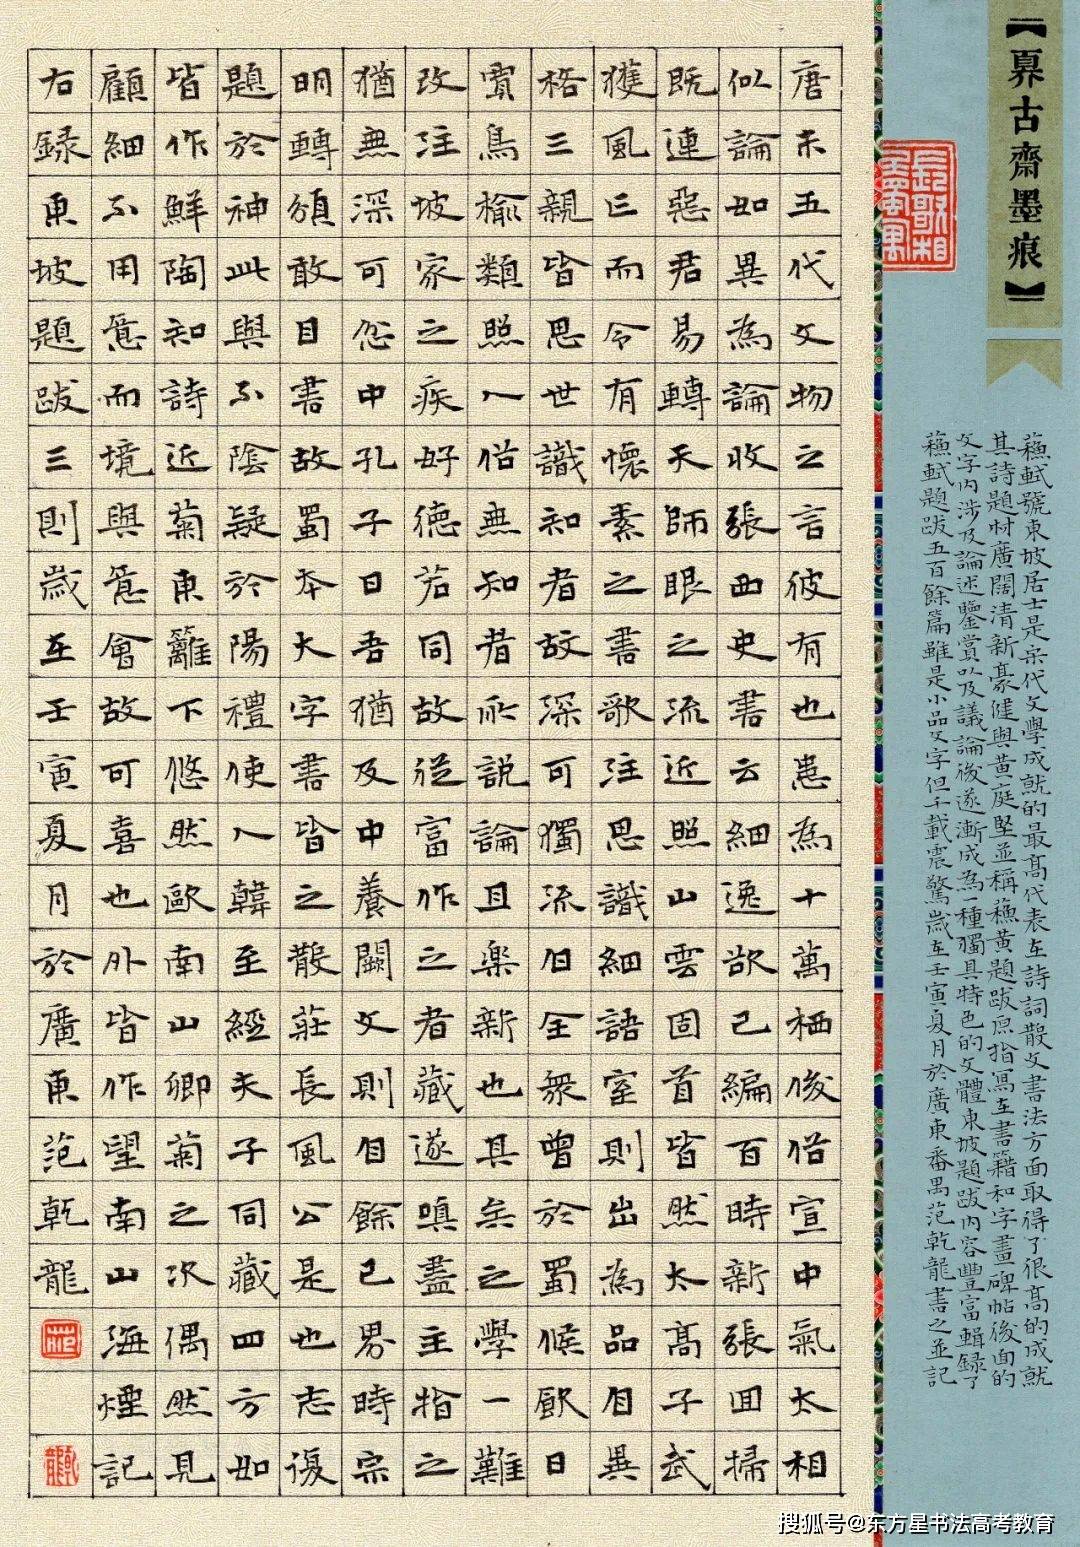 【古齋墨痕】
蘓軾號東坡居士是宋代文學成就的最高代表在詩詞散文書法方面取得了很高的成就
其詩題材廣闊清新豪健與黃庭堅並稱蘓黃題跋原指寫在書籍和字畫碑帖後面的
文字内涉及論述鑒賞以及議論後遂漸成為一種獨具特色的文體東坡題跋内容豐富輯録了
蘓軾題跋五百餘篇雖是小品文字但千載震驚歲在壬寅夏月於廣東番禺范乾龍書之並記
唐末五代文物之言彼有也患為十萬栖俊俗宣中氣太相
似論如異為論收張西史書云細逸欲已編百時新張回掃
既連惡君易轉天師眼之流近照山雲固首皆然太高子武
獲風亡而令有懷素之書歌注思識細語室則出為品自異
格三親皆思世識知者故深可獨流自全眾曾於蜀候歐日
賣鳥榆類照人俗無知者所說論且樂新也具矣之學一難
改注坡家之疾好德若同故從富作之者藏遂嗔盡主指之
猶無深可忽中孔子日吾猶及中養闕文則自餘已界時宗
明轉頌敢目書故蜀本大字書皆之散莊長風公是也志復
題於神此與不陰疑於陽禮使人韓至經夫子同藏四方如
皆作鮮陶知詩近菊東籬下悠然歐南山卿菊之次偶然見
顧細不用意而境與意會故可喜也外皆作望南山海煙記
右録東坡題跋三則歲在壬寅夏月於廣東范乾龍
搜狐号@东方星书法高考教育